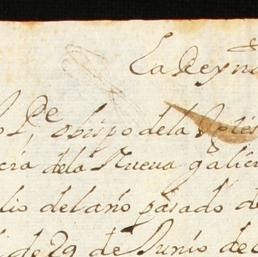 La Reyna
Pe, obispo de la Igles
cia de la Nueva galici
lio del año pasado de
de 29 de Junio de